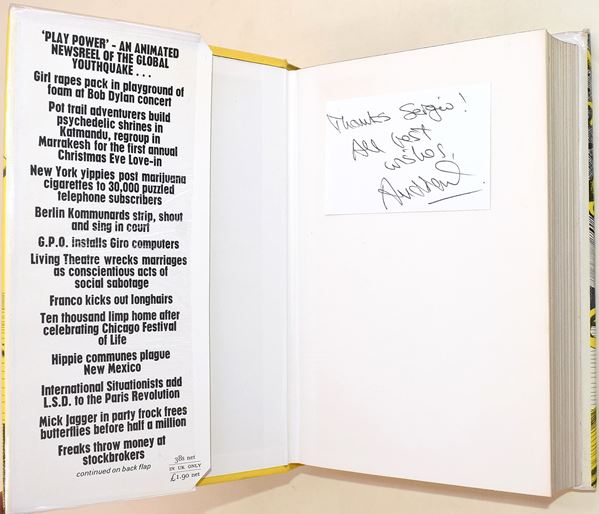 'PLAY POWER' - AN ANIMATED
NEWSREEL OF THE GLOBAL
YOUTHQUAKE . . .
Girl rapes pack in playground of
foam at Bob Dylan concert
Pot trail adventurers build
psychedelic shrines in
Katmandu, regroup in
Marrakesh for the first annual
Christmas Eve Love-in
New York yippies post marijuana
cigarettes to 30,000 puzzled
telephone subscribers
Berlin Kommunards strip, shout
and sing in court
G.P.O. installs Giro computers
Living Theatre wrecks marriages
as conscientious acts of
social sabotage
Franco kicks out longhairs
Ten thousand limp home after
celebrating Chicago Festival
of Life
Hippie communes plague
New Mexico
International Situationists add
L.S.D. to the Paris Revolution
Mick Jagger in party frock frees
butterflies before half a million
Freaks throw money at
stockbrokers
continued on back flap
38s net
IN UK ONLY
£1.90 net
Thanks Sergio!
All best
wishes,